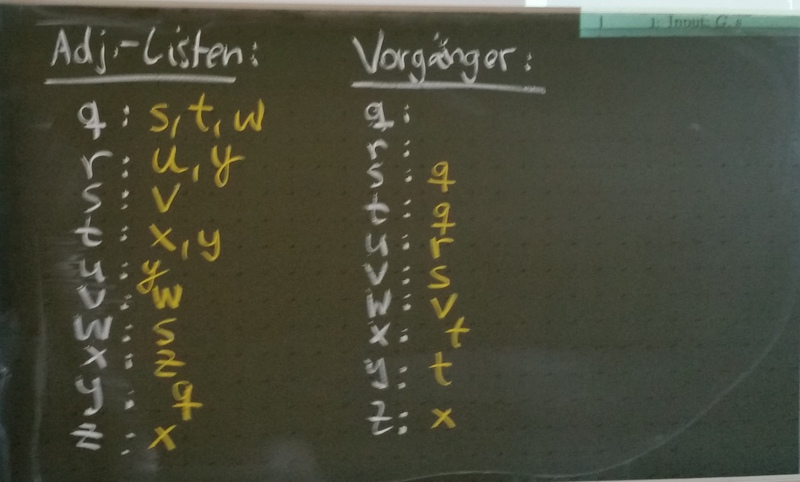 ): Input: G, s
Adj.-Listen: Vorgänger:
q: s, t, w q:
r: u, y r:
s: v s: q
t: x, y t: q
u: y u: r
v: w v: s
w: s w: v
x: z x: t
y: q y: t
z: x z: x